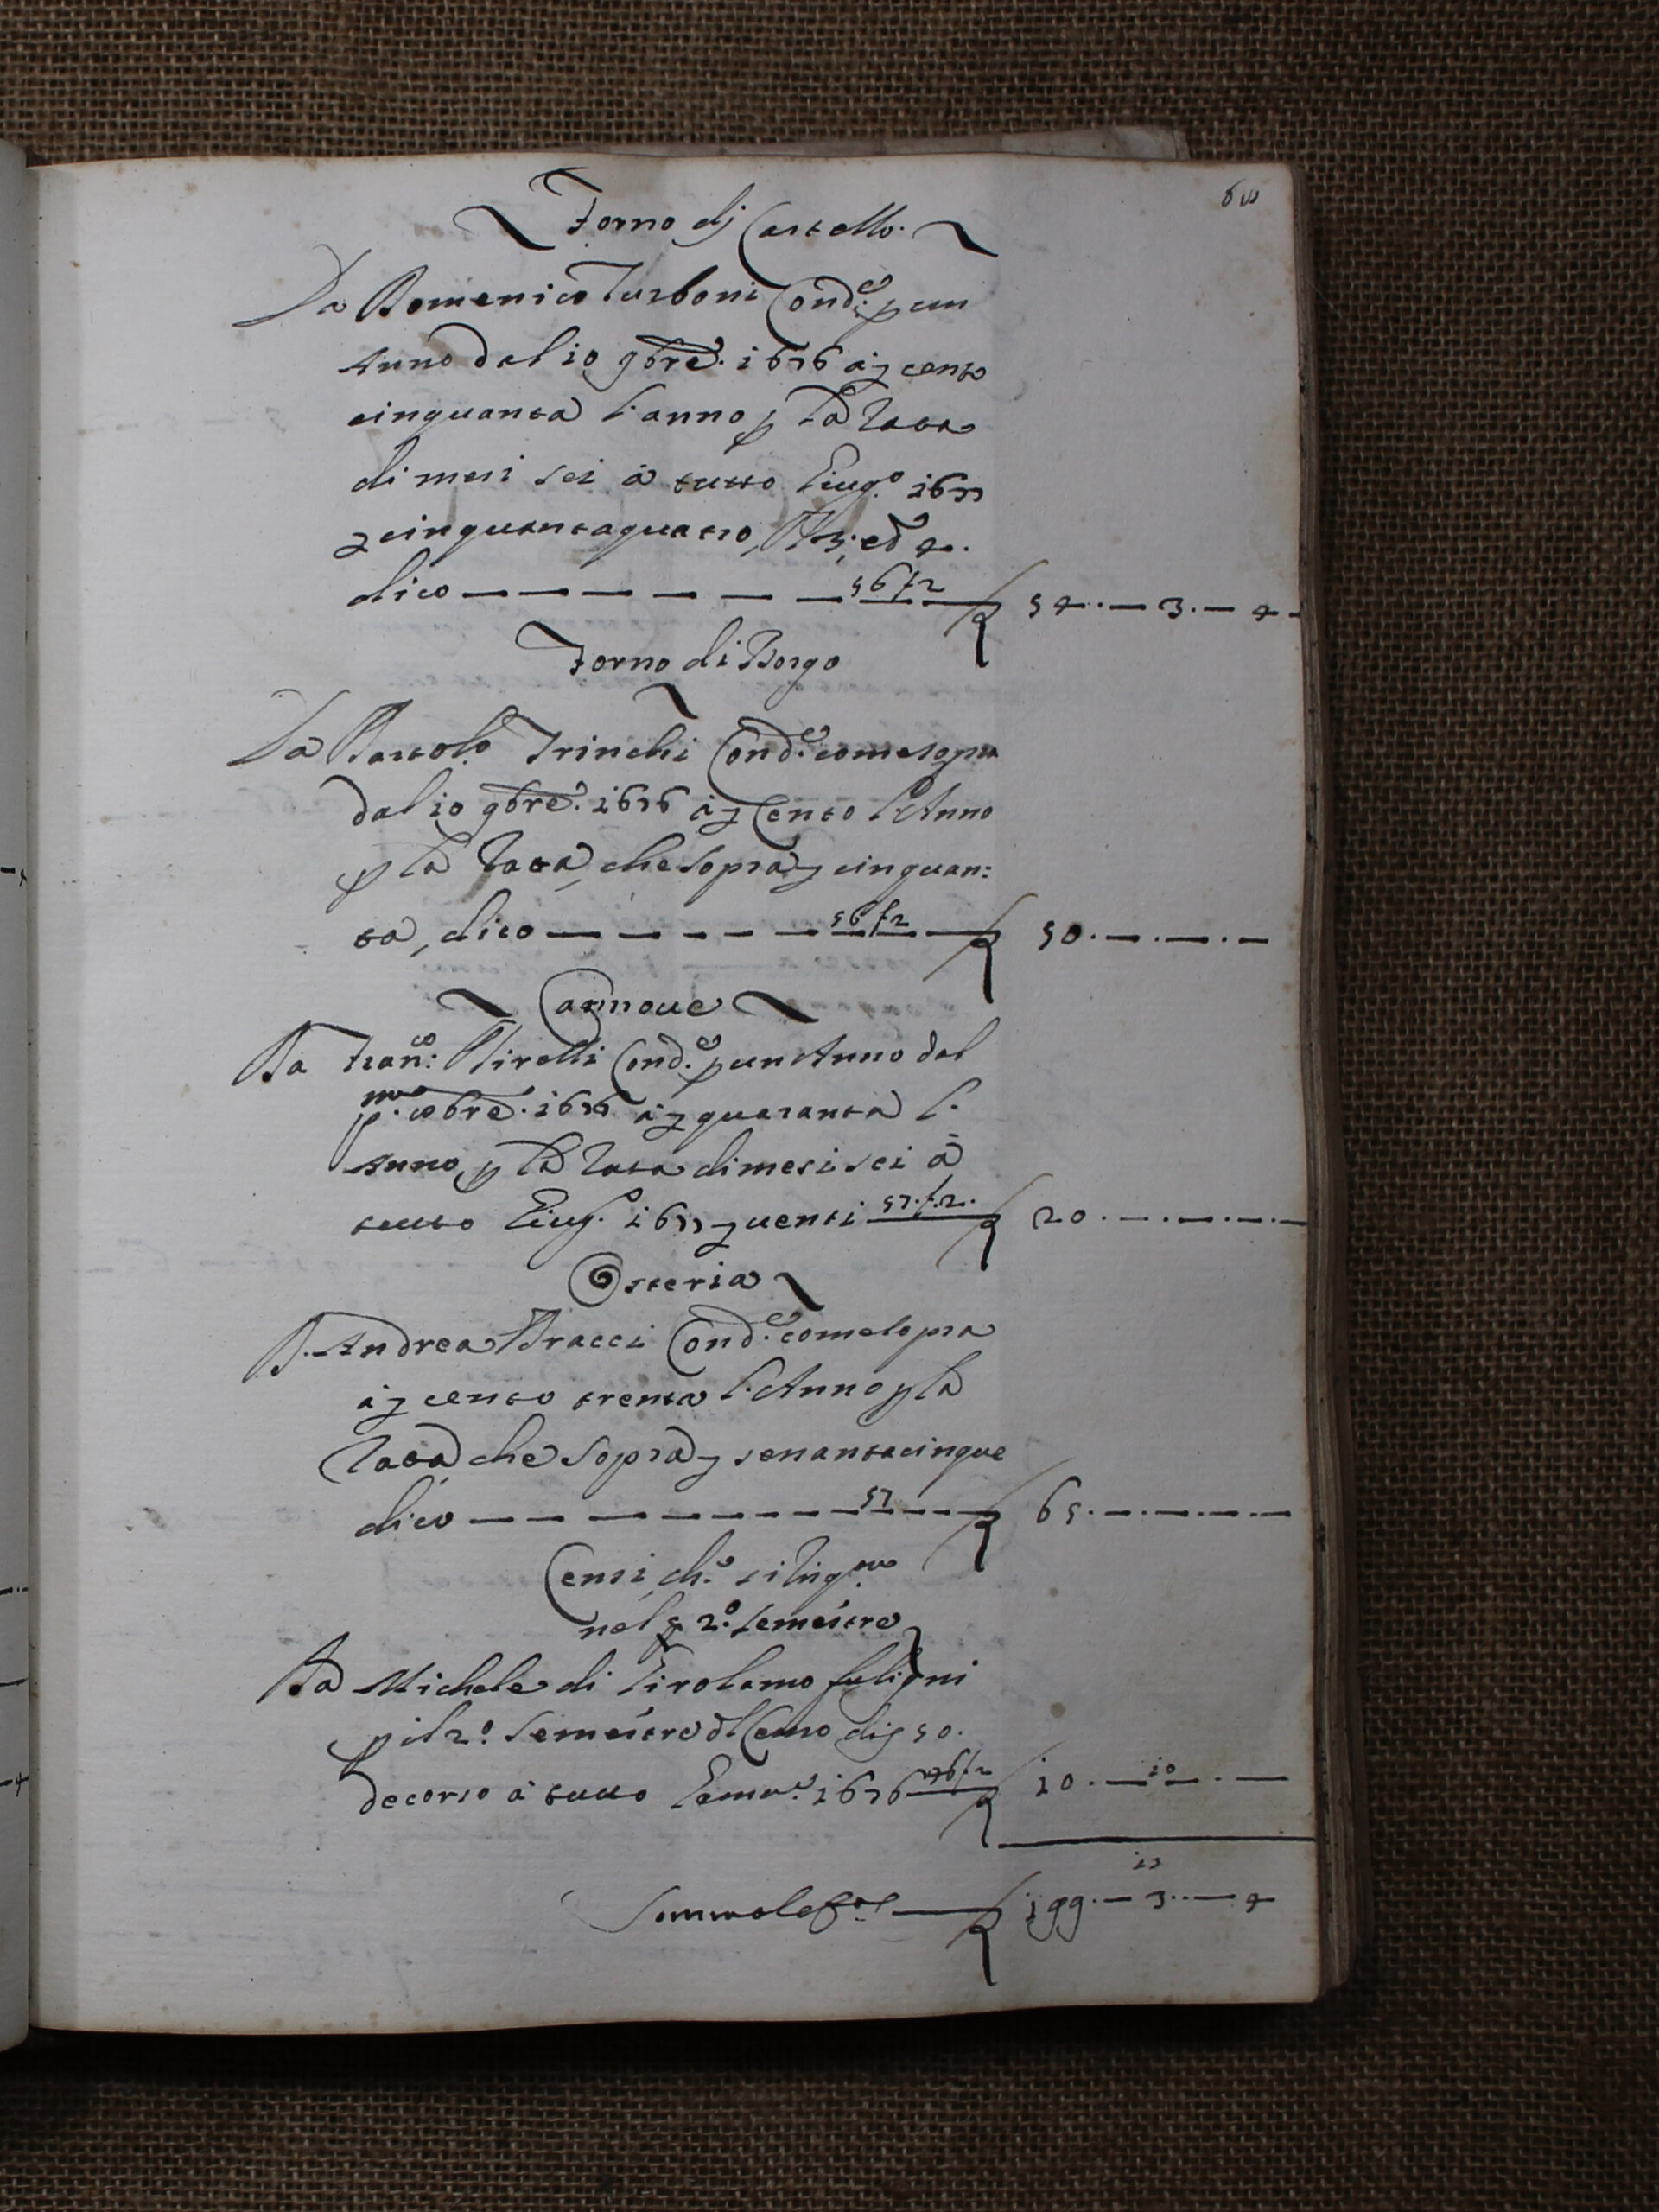 Forno dj Castello.
Da Domenico Turboni Cond.e p un
Anno dal 10 9bre. 1676 à cento
cinquanta l'anno p la rata
di mesi sei à tutto Giug.o 1677
cinquantaquattro, 3. ed 4.
dico — — — — — — 56 f 2 — 54. — 3. — 4 —
Forno di Borgo
Da Bartolo. Trinchi Cond.e come sopra
dal 10 9bre. 1676 à Cento l'Anno
p la rata, che sopra cinquan:
ta, dico — — — — — 56 f 2 — 50. — . — . —
Cannove
Da Fran:co Pirelli Cond.e p un Anno dal
p.mo xbre. 1676 à quaranta l'
Anno, p la rata di mesi sei à
tutto Giug.o 1677 venti 57. f. 2. 20. — . — . — . —
Osteria
D. Andrea Bracci Cond.e come sopra
à cento trenta l'Anno p la
rata che sopra sesantacinque
dico — — — — — — — 57 — — 65. — . — . — . —
Censi, ch.e
nel p 2.o Semestre
Da Michele di Girolamo fuligni
p il 2.o Semestre dl Censo di 50.
decorso à tutto Genn.o 1676 56 f 2 10. — 10 — . —
13
199. — 3. — 4